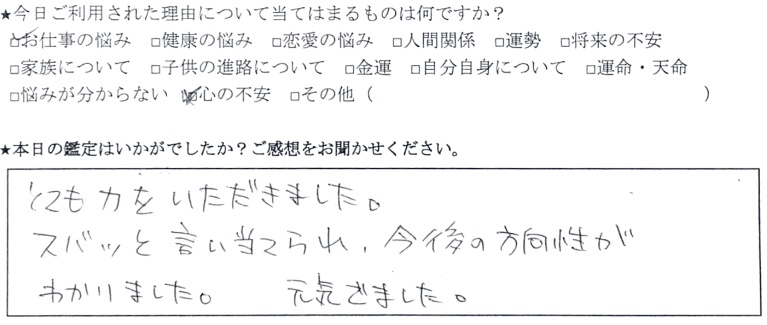 ★今日ご利用された理由について当てはまるものは何ですか？
☑お仕事の悩み □健康の悩み □恋愛の悩み □人間関係 □運勢 □将来の不安
□家族について □子供の進路について □金運 □自分自身について □運命・天命
□悩みが分からない ☑心の不安 □その他（ ）
★本日の鑑定はいかがでしたか？ご感想をお聞かせください。
とても力をいただきました。
スバッと言い当てられ、今後の方向性が
わかりました。 元気でました。